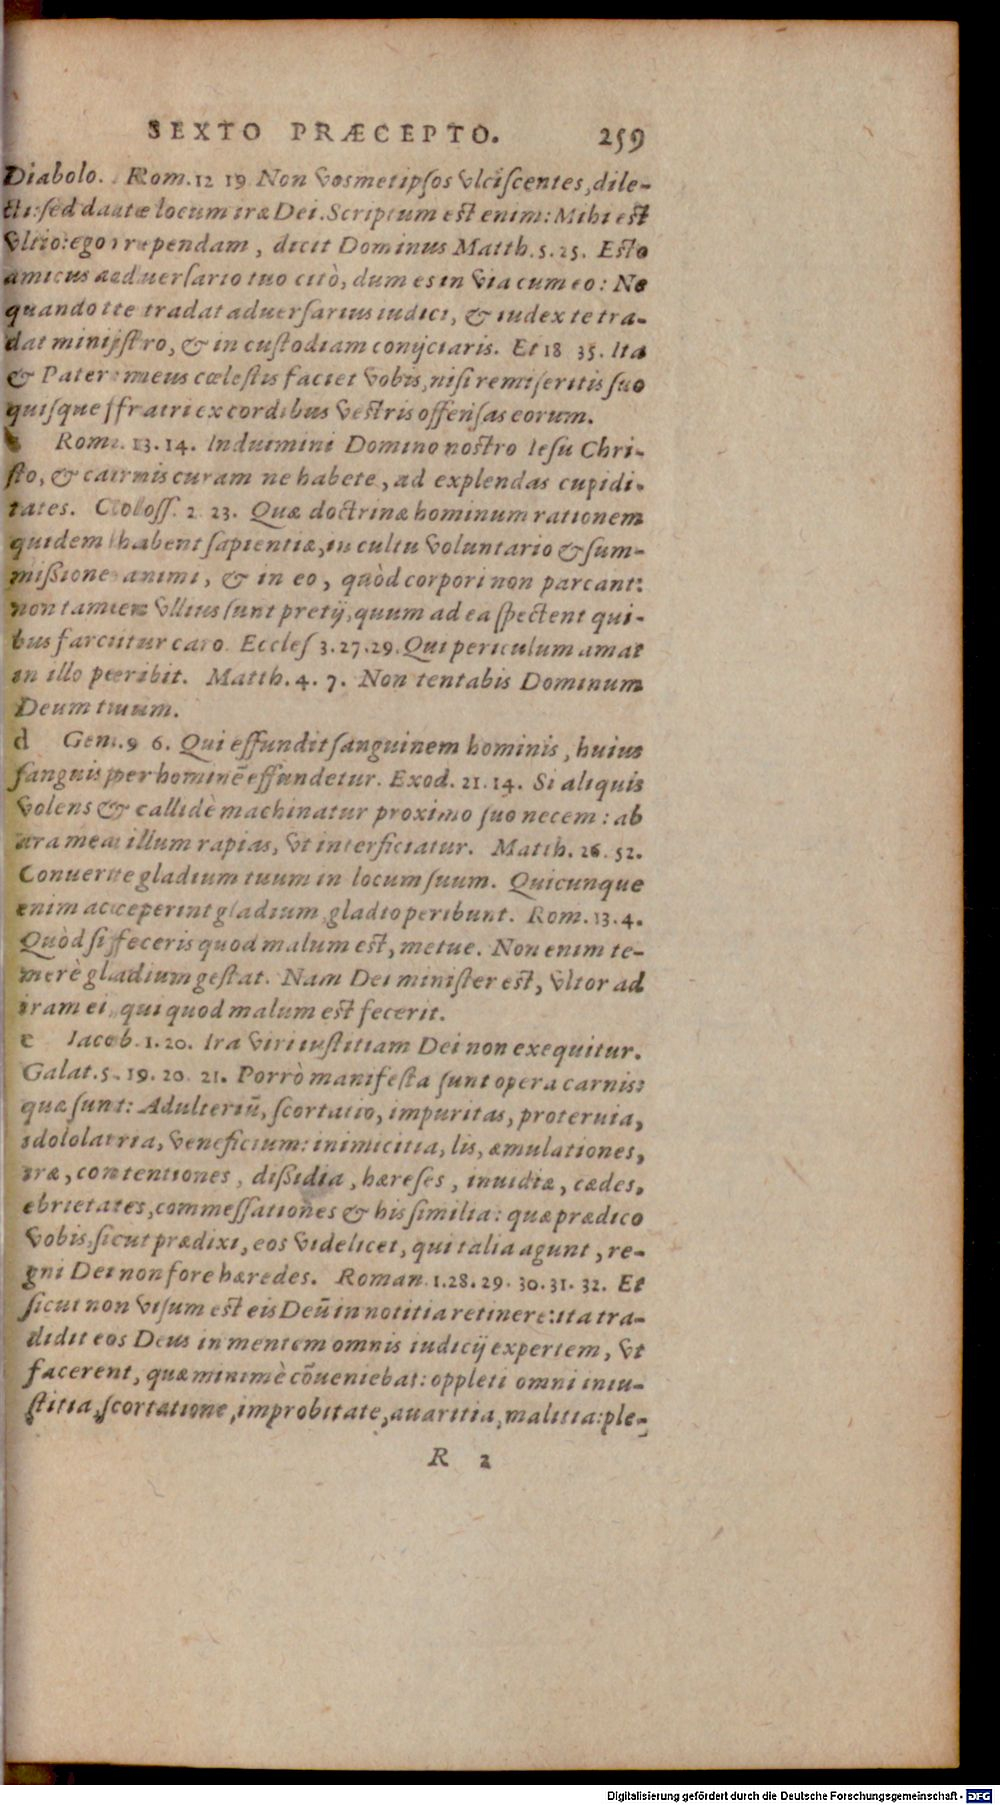 SEXTO PRÆCEPTO. 259
Diabolo. Rom. 12 19 Non vosmetipsos vlciscentes, dile-
cti: sed daate locum iræ Dei. Scriptum est enim: Mihi est
vltio: ego rependam, dicit Dominus Matth. 5. 25. Esto
amicus aduersario tuo citò, dum es in via cum eo: Ne
quando te tradat aduersarius iudici, & iudex te tra-
dat ministro, & in custodiam conijciaris. Et 18 35. Ita
& Pater meus cœlestis faciet vobis, nisi remiseritis suo
quisque fratri ex cordibus vestris offensas eorum.
Rom. 13. 14. Induimini Domino nostro Iesu Chri-
sto, & carnis curam ne habete, ad explendas cupidi-
tates. Coloss. 2 23. Quæ doctrinæ hominum rationem
quidem habent sapientiæ, in cultu voluntario & sum-
missione animi, & in eo, quòd corpori non parcant:
non tamen vllius sunt pretij, quum ad ea spectent qui-
bus farcitur caro. Eccles 3. 27. 29. Qui periculum amat
in illo peribit. Matth. 4. 7. Non tentabis Dominum
Deum tuum.
d Gen. 9 6. Qui effundit sanguinem hominis, huius
sanguis per hominē effundetur. Exod. 21. 14. Si aliquis
volens & callidè machinatur proximo suo necem: ab
ara mea illum rapias, vt interficiatur. Matth. 26. 52.
Conuerte gladium tuum in locum suum. Quicunque
enim acceperint gladium, gladio peribunt. Rom. 13. 4.
Quòd si feceris quod malum est, metue. Non enim te-
merè gladium gestat. Nam Dei minister est, vltor ad
iram ei, qui quod malum est fecerit.
e Iacob. 1. 20. Ira viri iustitiam Dei non exequitur.
Galat. 5. 19. 20. 21. Porrò manifesta sunt opera carnis:
quæ sunt: Adulteriū, scortatio, impuritas, proteruia,
idololatria, veneficium: inimicitia, lis, æmulationes,
iræ, contentiones, dissidia, hæreses, inuidiæ, cædes,
ebrietates, commessationes & his similia: quæ prædico
vobis, sicut prædixi, eos videlicet, qui talia agunt, re-
gni Dei non fore hæredes. Roman. 1. 28. 29. 30. 31. 32. Et
sicut non visum est eis Deū in notitia retinere: ita tra-
didit eos Deus in mentem omnis iudicij expertem, vt
facerent, quæ minimè cōueniebat: oppleti omni iniu-
stitia, scortatione, improbitate, auaritia, malitia: ple-
R 2
Digitalisierung gefördert durch die Deutsche Forschungsgemeinschaft - DFG